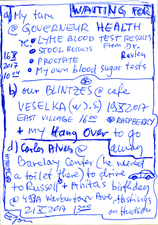 WAITING FOR
a) My turn
@ GOVERNEUR HEALTH
• LyME BLOOD TEST RESULTS
• STOOL RESULTS From Dr.
• PROSTATE
• My own blood sugar tests
16 X 2017
b) our BLINTZES @ cafe
VESELKA (w/S) 19X2017
EAST VILLAGE 16:00 RASPBERRY
+ my Hang Over to go away
d) Carlos Alves @
Barclay Center (he needed
a toilet there) to drive
to Russell + Trinita's birthday
@ 499A Warburton Ave, Hastings
21 X 2017 1300 on Hudson